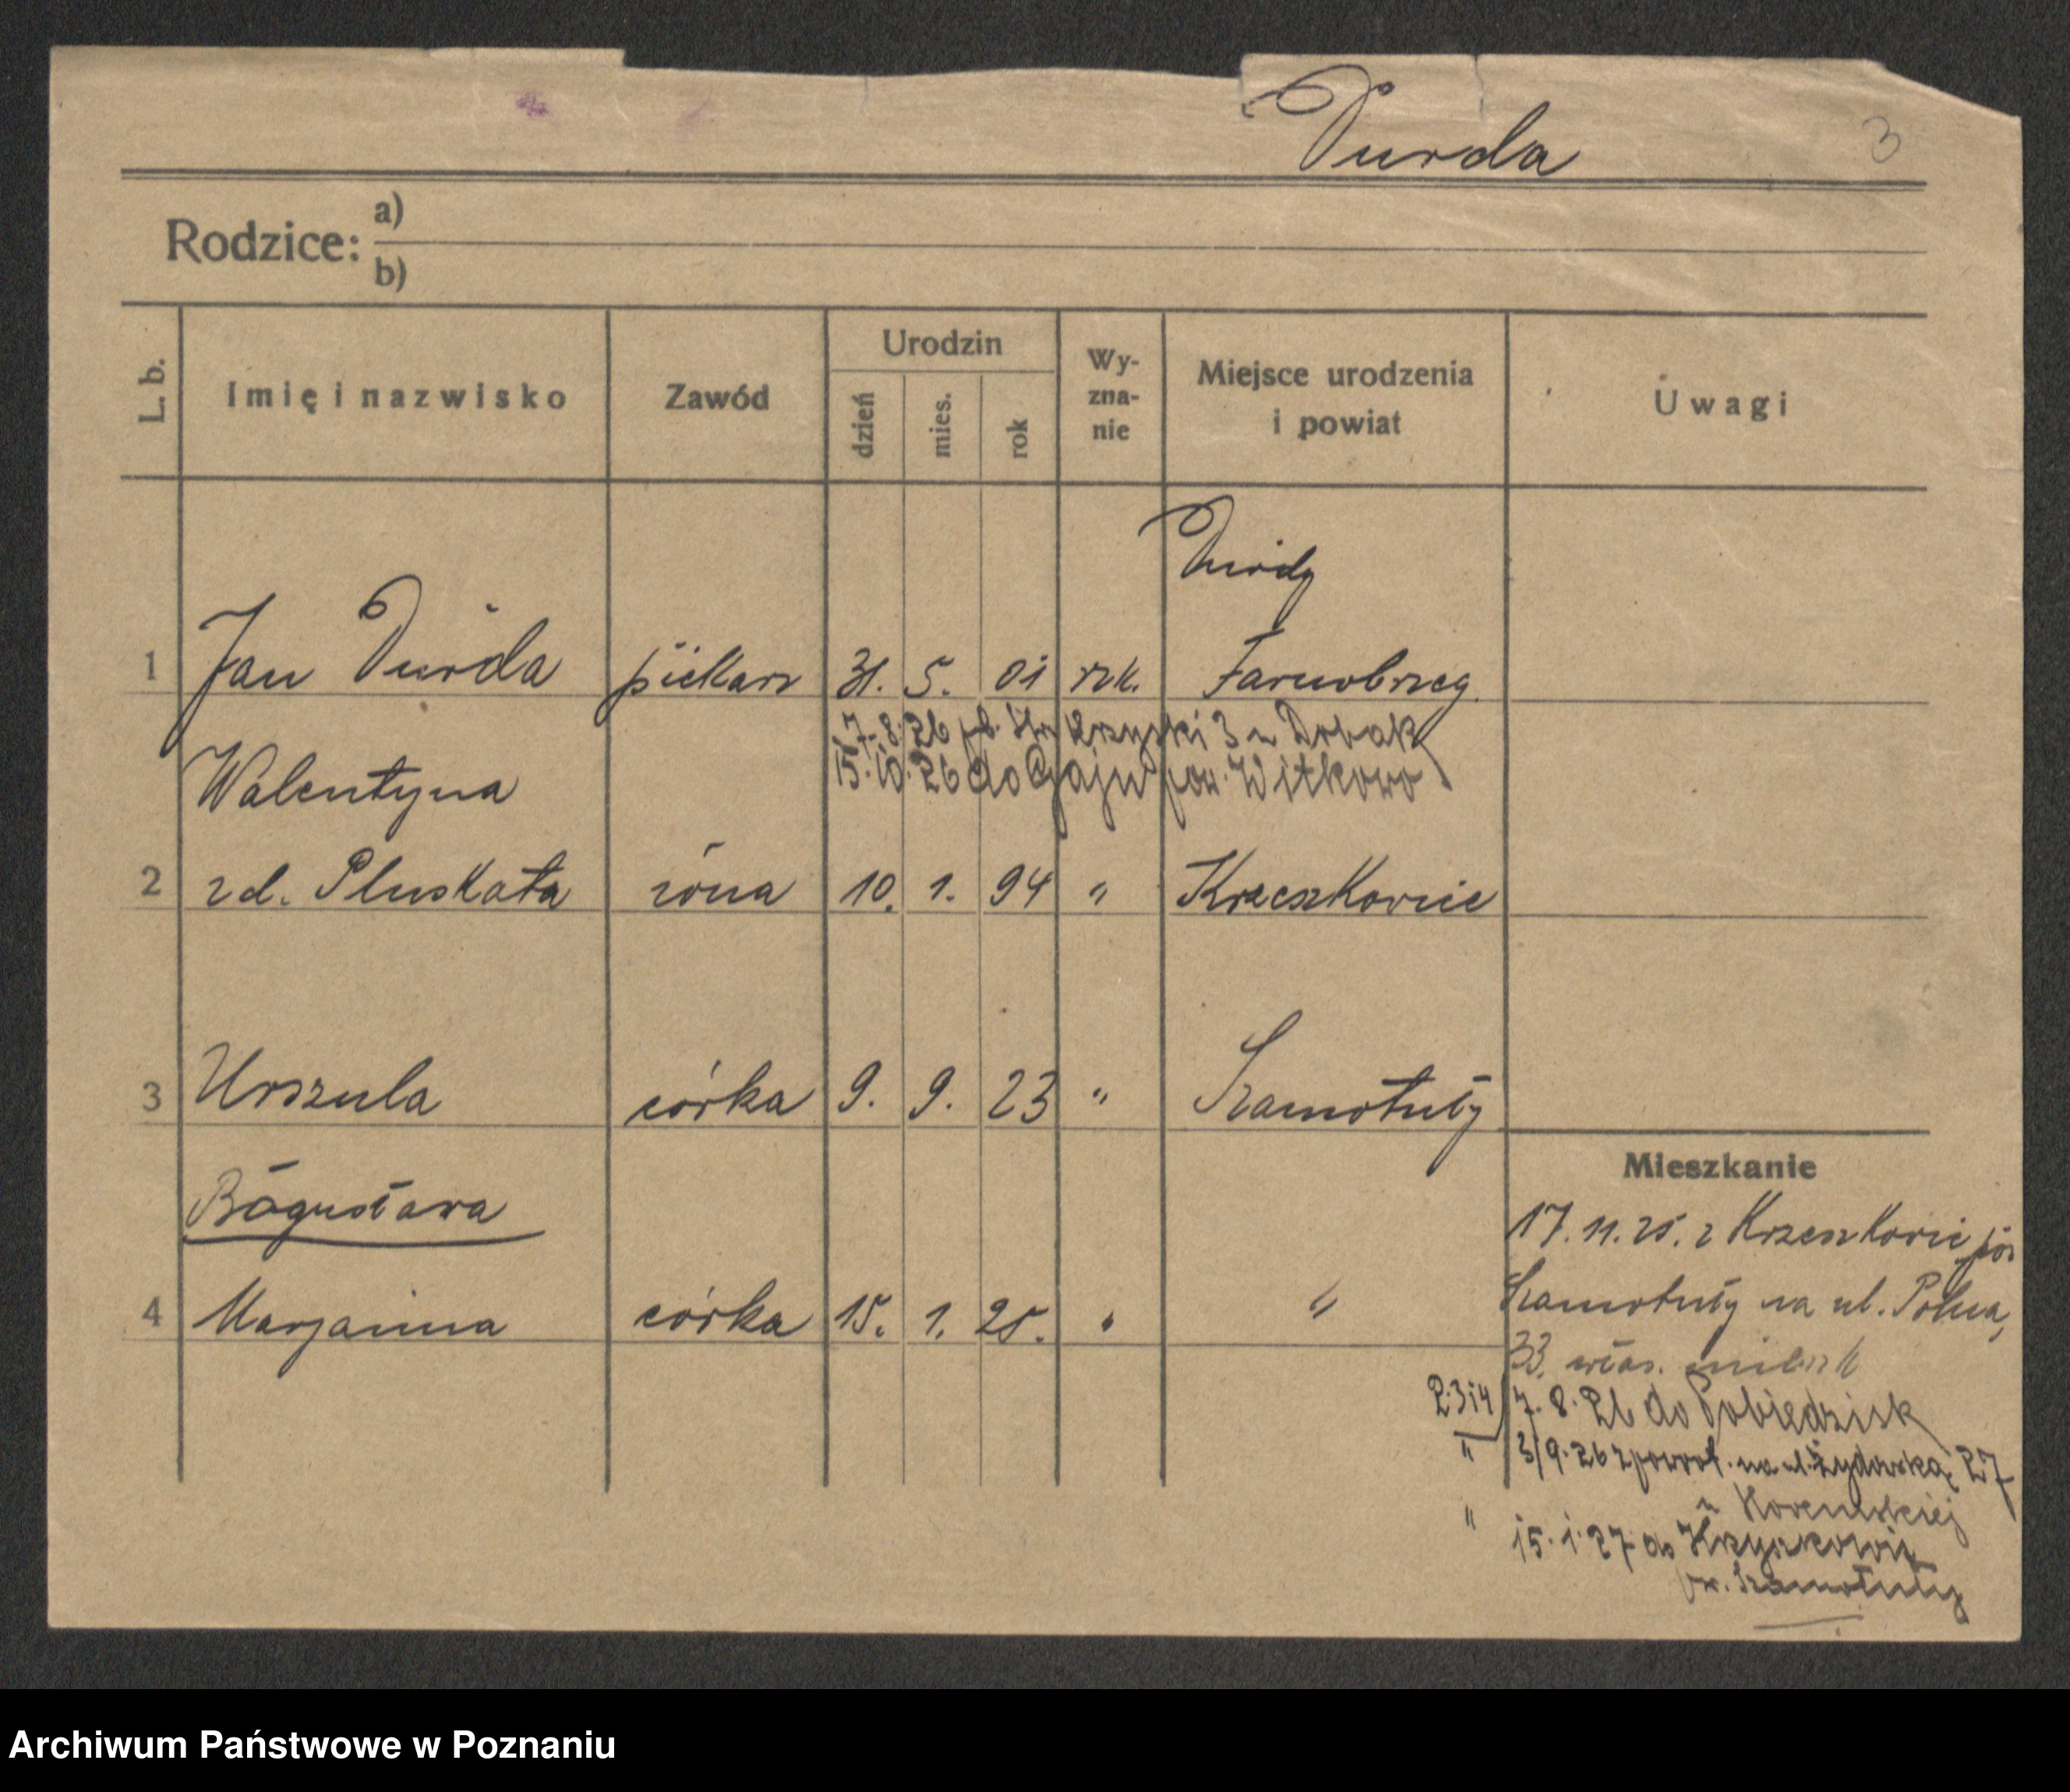 Durda
3
Rodzice: a)
b)
L. b.
Imię i nazwisko
Zawód
Urodzin
dzień
mies.
rok
Wy-
zna-
nie
Miejsce urodzenia
i powiat
Uwagi
1 Jan Durda piekarz 31. 5. 01 rzk. Tarnobrzeg
7. 8. 26 3 u
15. 10. 26 do Gaju pow. Witkowo
Walentyna
2 zd. Pluskata żona 10. 1. 94 " Krzeszkowice
3 Urszula córka 9. 9. 23 " Szamotuły
Bogusława
4 Marjanna córka 15. 1. 25. " "
Mieszkanie
17. 11. 25. z Krzeszkowic
Szamotuły na ul. Polna,
33.
2. 3 i 4 7. 8. 26 do Pobiedzisk
" 3/9. 26 z powrot. na ul. Żydowską 27
u
" 15. 1. 27 do
pow. Szamotuły
Archiwum Państwowe w Poznaniu